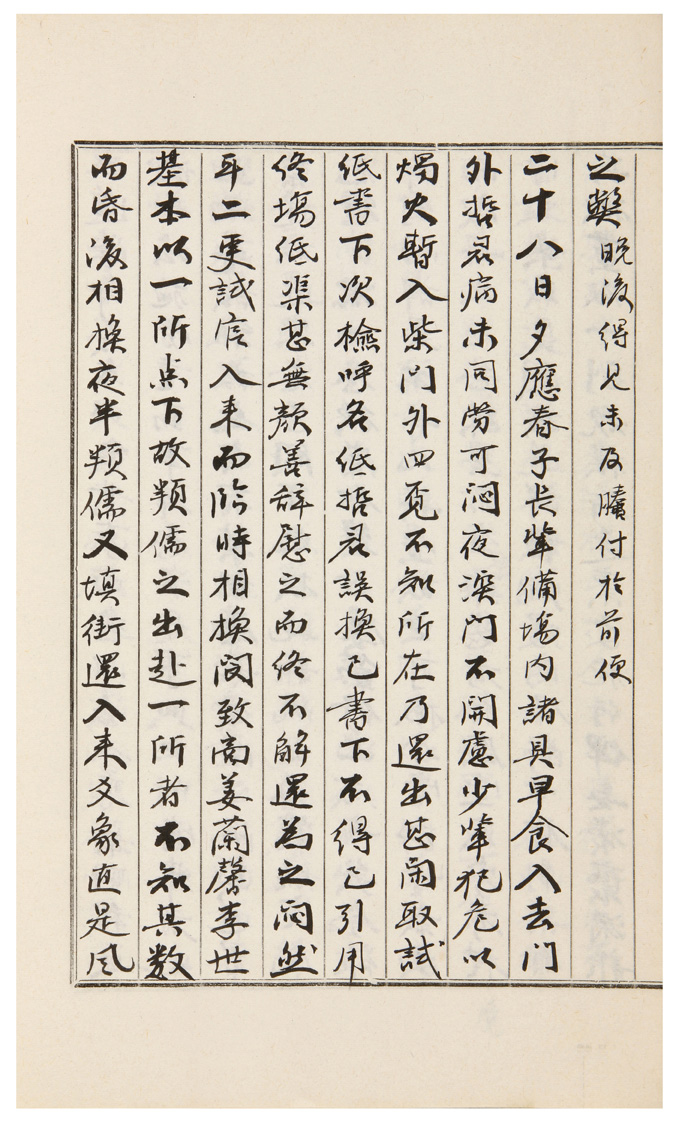 之弊晚後得見未及賸付於前便
二十八日夕應春子長輩備場內諸具早食入去門
外哲君病未同勞可悶夜深門不開慮少輩犯危以
燭火暫入柴門外四覓不知所在乃還出甚鬧取試
紙書下次檢呼名紙哲君誤換已書下不得已引用
終場紙渠甚無顏善辭慰之而終不解還為之悶然
耳二更試官入來而臨時相換閔致商姜蘭馨李世
基本以一所点下故類儒之出赴一所者不知其數
而昏後相換夜半類儒又塡街還入來爻象直是風